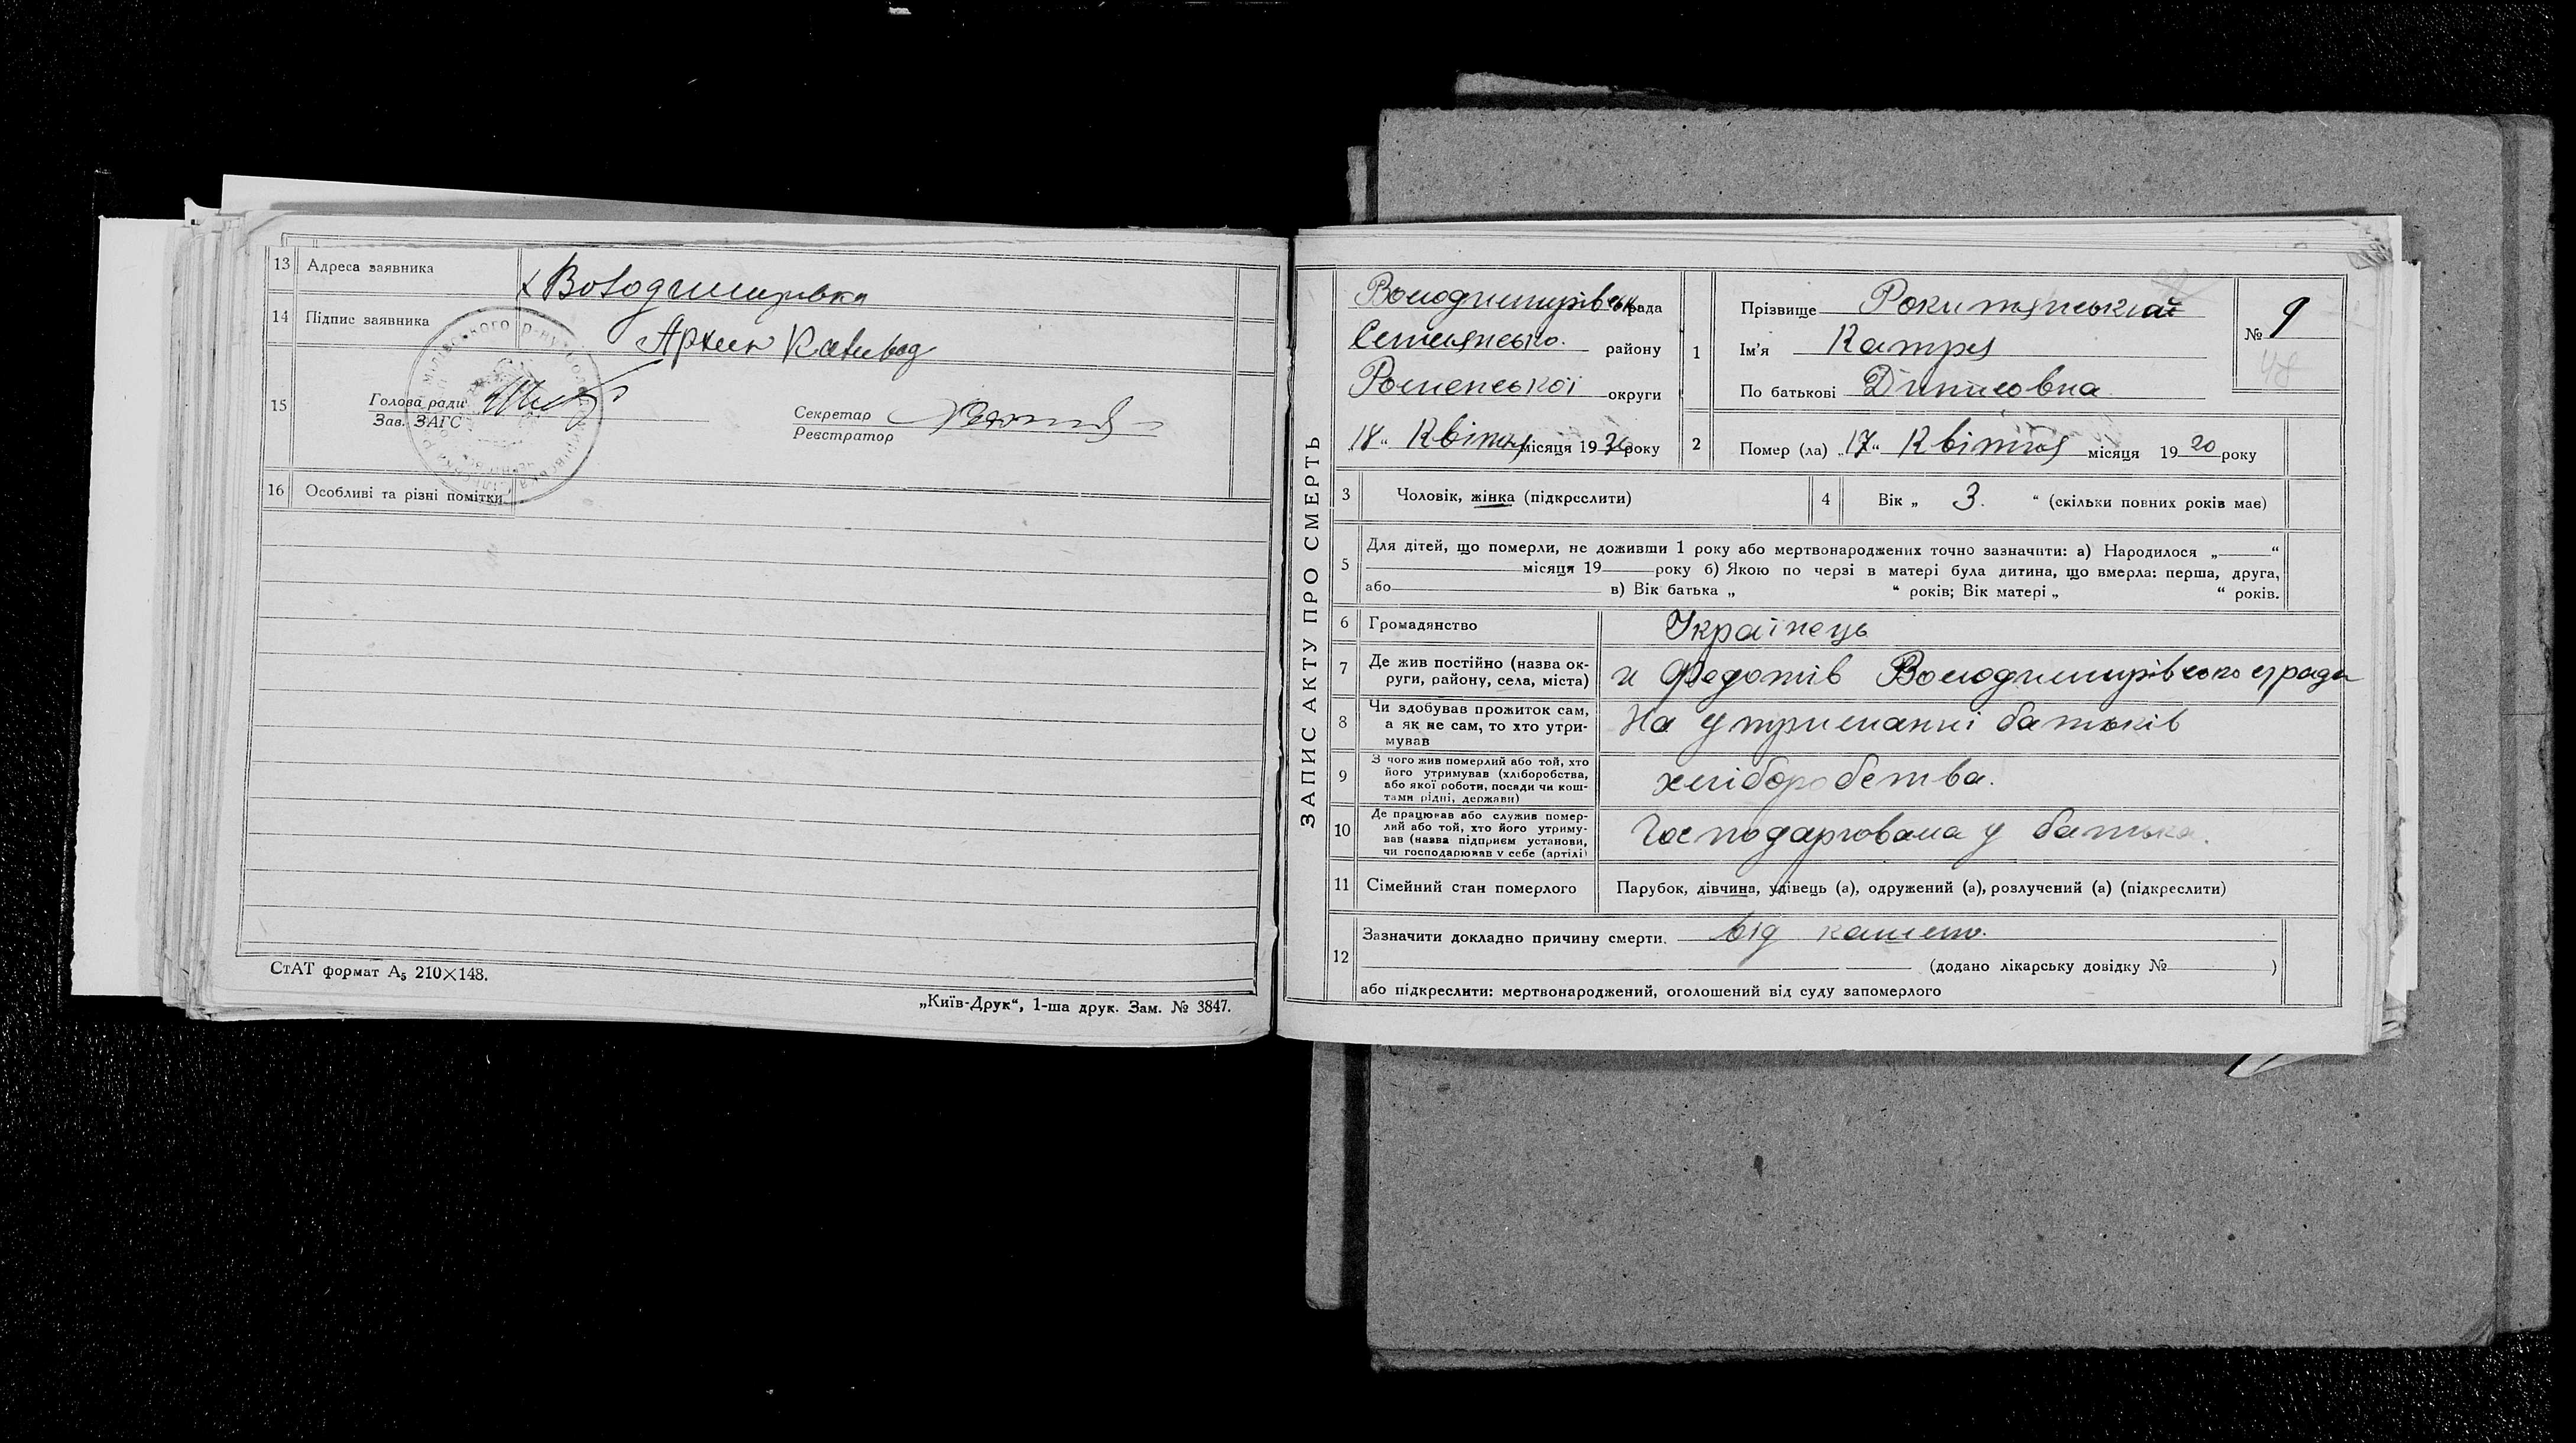 13 Адреса заявника х Володимирівка
14 Підпис заявника Архип
15 Голова ради
Зав. ЗАГС
Секретар
Реєстратор
16 Особливі та різні помітки
СтАТ формат А₅ 210×148.
„Київ-Друк“, 1-ша друк. Зам. № 3847.
ЗАПИС АКТУ ПРО СМЕРТЬ
Володимирівськ рада
району
Роменської округи
„18“ Квітня місяця 19 року
1 Прізвище Рокитянська
Ім'я Катря
По батькові
№ 9
48
2 Помер (ла) „17“ Квітня місяця 19 20 року
3 Чоловік, жінка (підкреслити)
4 Вік „ 3. “ (скільки повних років має)
5 Для дітей, що померли, не доживши 1 року або мертвонароджених точно зазначити: а) Народилося „ “
місяця 19 року б) Якою по черзі в матері була дитина, що вмерла: перша, друга,
або в) Вік батька „ “ років; Вік матері „ “ років.
6 Громадянство Українець
7 Де жив постійно (назва ок-
руги, району, села, міста) х Федотів Володимирівсько с/ради
8 Чи здобував прожиток сам,
а як не сам, то хто утри-
мував На утриманні батьків
9 З чого жив померлий або той, хто
його утримував (хліборобства,
або якої роботи, посади чи кош-
тами рідні, держави) хліборобства.
10 Де працював або служив помер-
лий або той, хто його утриму-
вав (назва підприєм установи,
чи господарював у себе (артілі) Господарювала у батька.
11 Сімейний стан померлого Парубок, дівчина, удівець (а), одружений (а), розлучений (а) (підкреслити)
12 Зазначити докладно причину смерти. від кашлю.
(додано лікарську довідку № )
або підкреслити: мертвонароджений, оголошений від суду запомерлого